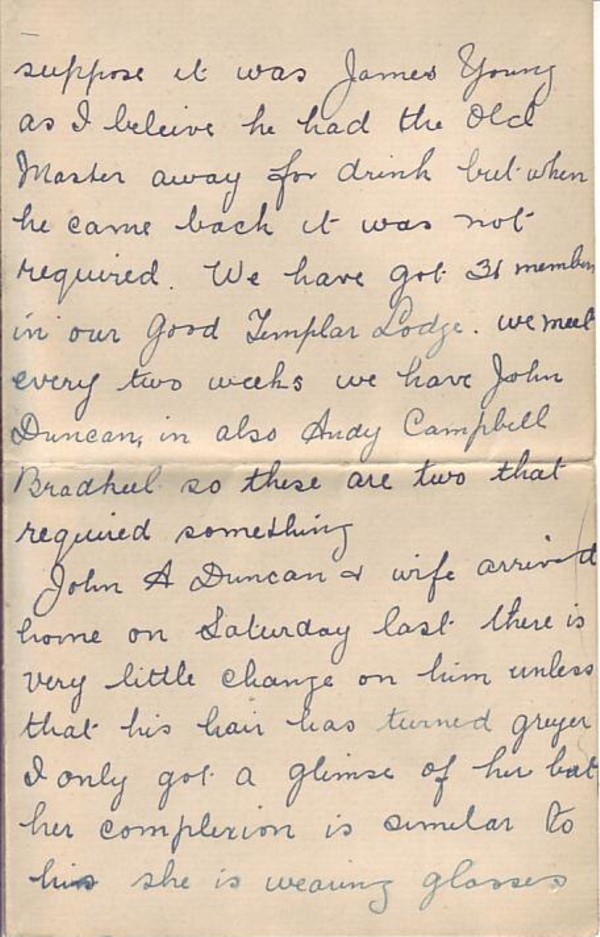 suppose it was James Young
as I beleive he had the Old
Master away for drink but when
he came back it was not
required. We have got 31 members
in our Good Templar Lodge. we meet
every two weeks we have John
Duncan, in also Andy Campbell
Bradheel so these are two that
required something
John A Duncan & wife arrived
home on Saturday last there is
very little change on him unless
that his hair has turned greyer
I only got a glimse of her but
her complexion is similar to
his she is wearing glasses